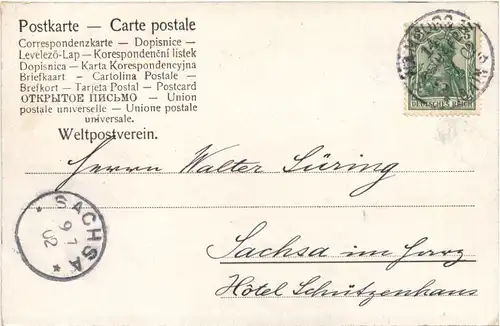 Postkarte — Carte postale
Correspondenzkarte — Dopisnice —
Levelező-Lap — Korespondenční listek
Dopisnica — Karta Korespondencyjna
Briefkaart — Cartolina Postale —
Brefkort — Tarjeta Postal — Postcard
ОТКРЫТОЕ ПИСЬМО — Union
postale universelle — Unione postale
universale.
Weltpostverein.
DEUTSCHES REICH
Herrn Walter Süring
SACHSA
9 1
02
Sachsa im Harz
Hôtel Schützenhaus